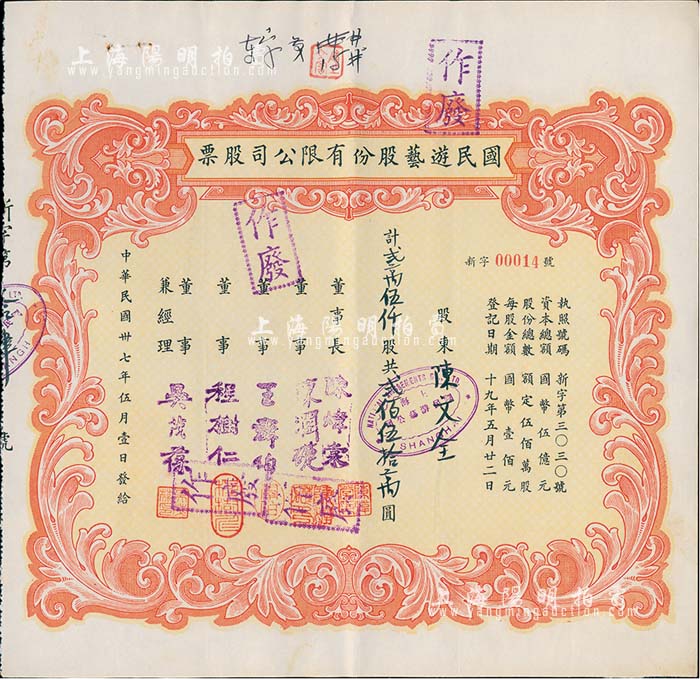 上海陽明拍賣
www.yangmingauction.com
作廢
國民遊藝股份有限公司股票
新字 00014 號
執照號碼 新字第三〇三〇號
資本總額 國幣伍億元
股份總數 額定伍佰萬股
每股金額 國幣壹佰元
登記日期 十九年五月廿二日
股東 陳文奎
計貳萬伍仟股共貳佰伍拾萬圓
SHANGHAI
作廢
董事長
董事
董事
董事 程樹仁
董事兼經理 吳茂蓀
作廢
中華民國卅七年伍月壹日發給
上海陽明拍賣
www.yangmingauction.com
上海陽明拍賣
www.yangmingauction.com